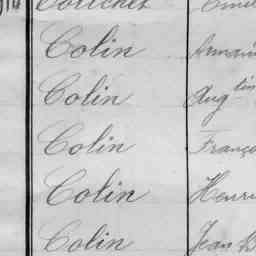 Colin
Colin Aug tin
Colin Franço
Colin Henri
Colin Jean B